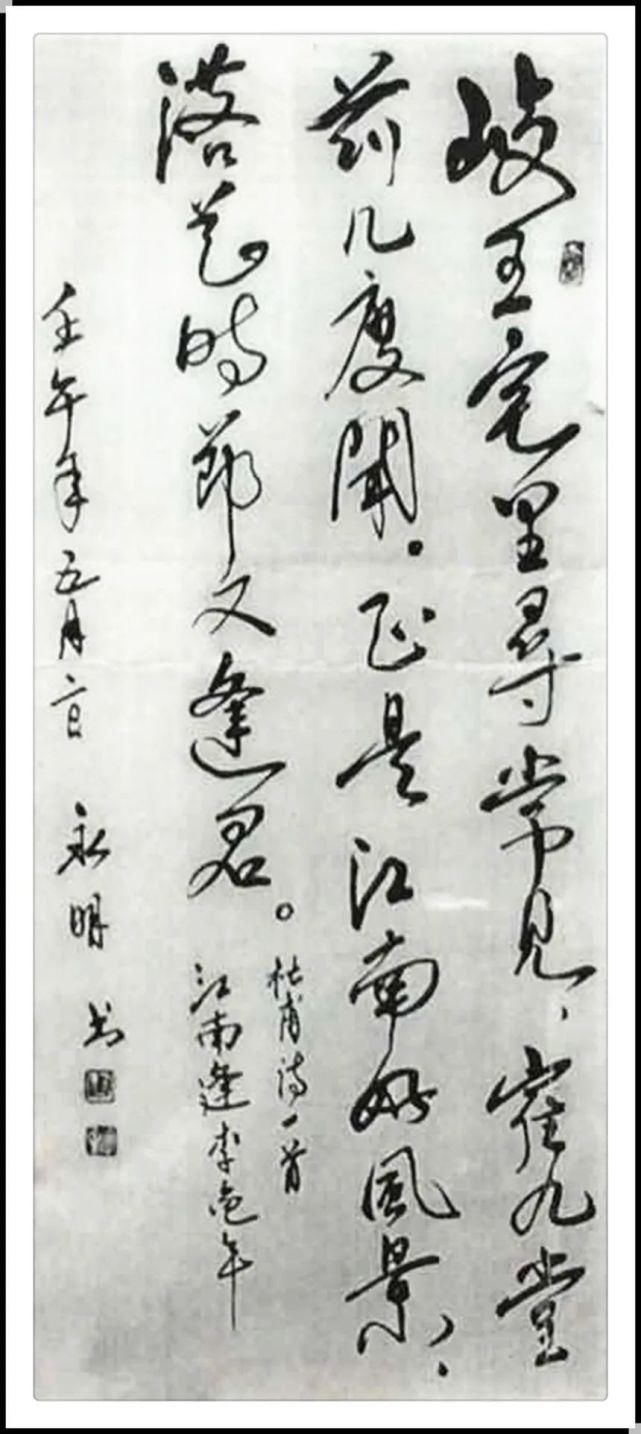 岐王宅里尋常見，崔九堂
前几度聞。正是江南好風景，
落花時節又逢君。
杜甫诗一首
江南逢李龟年
壬午年五月日 永明 书